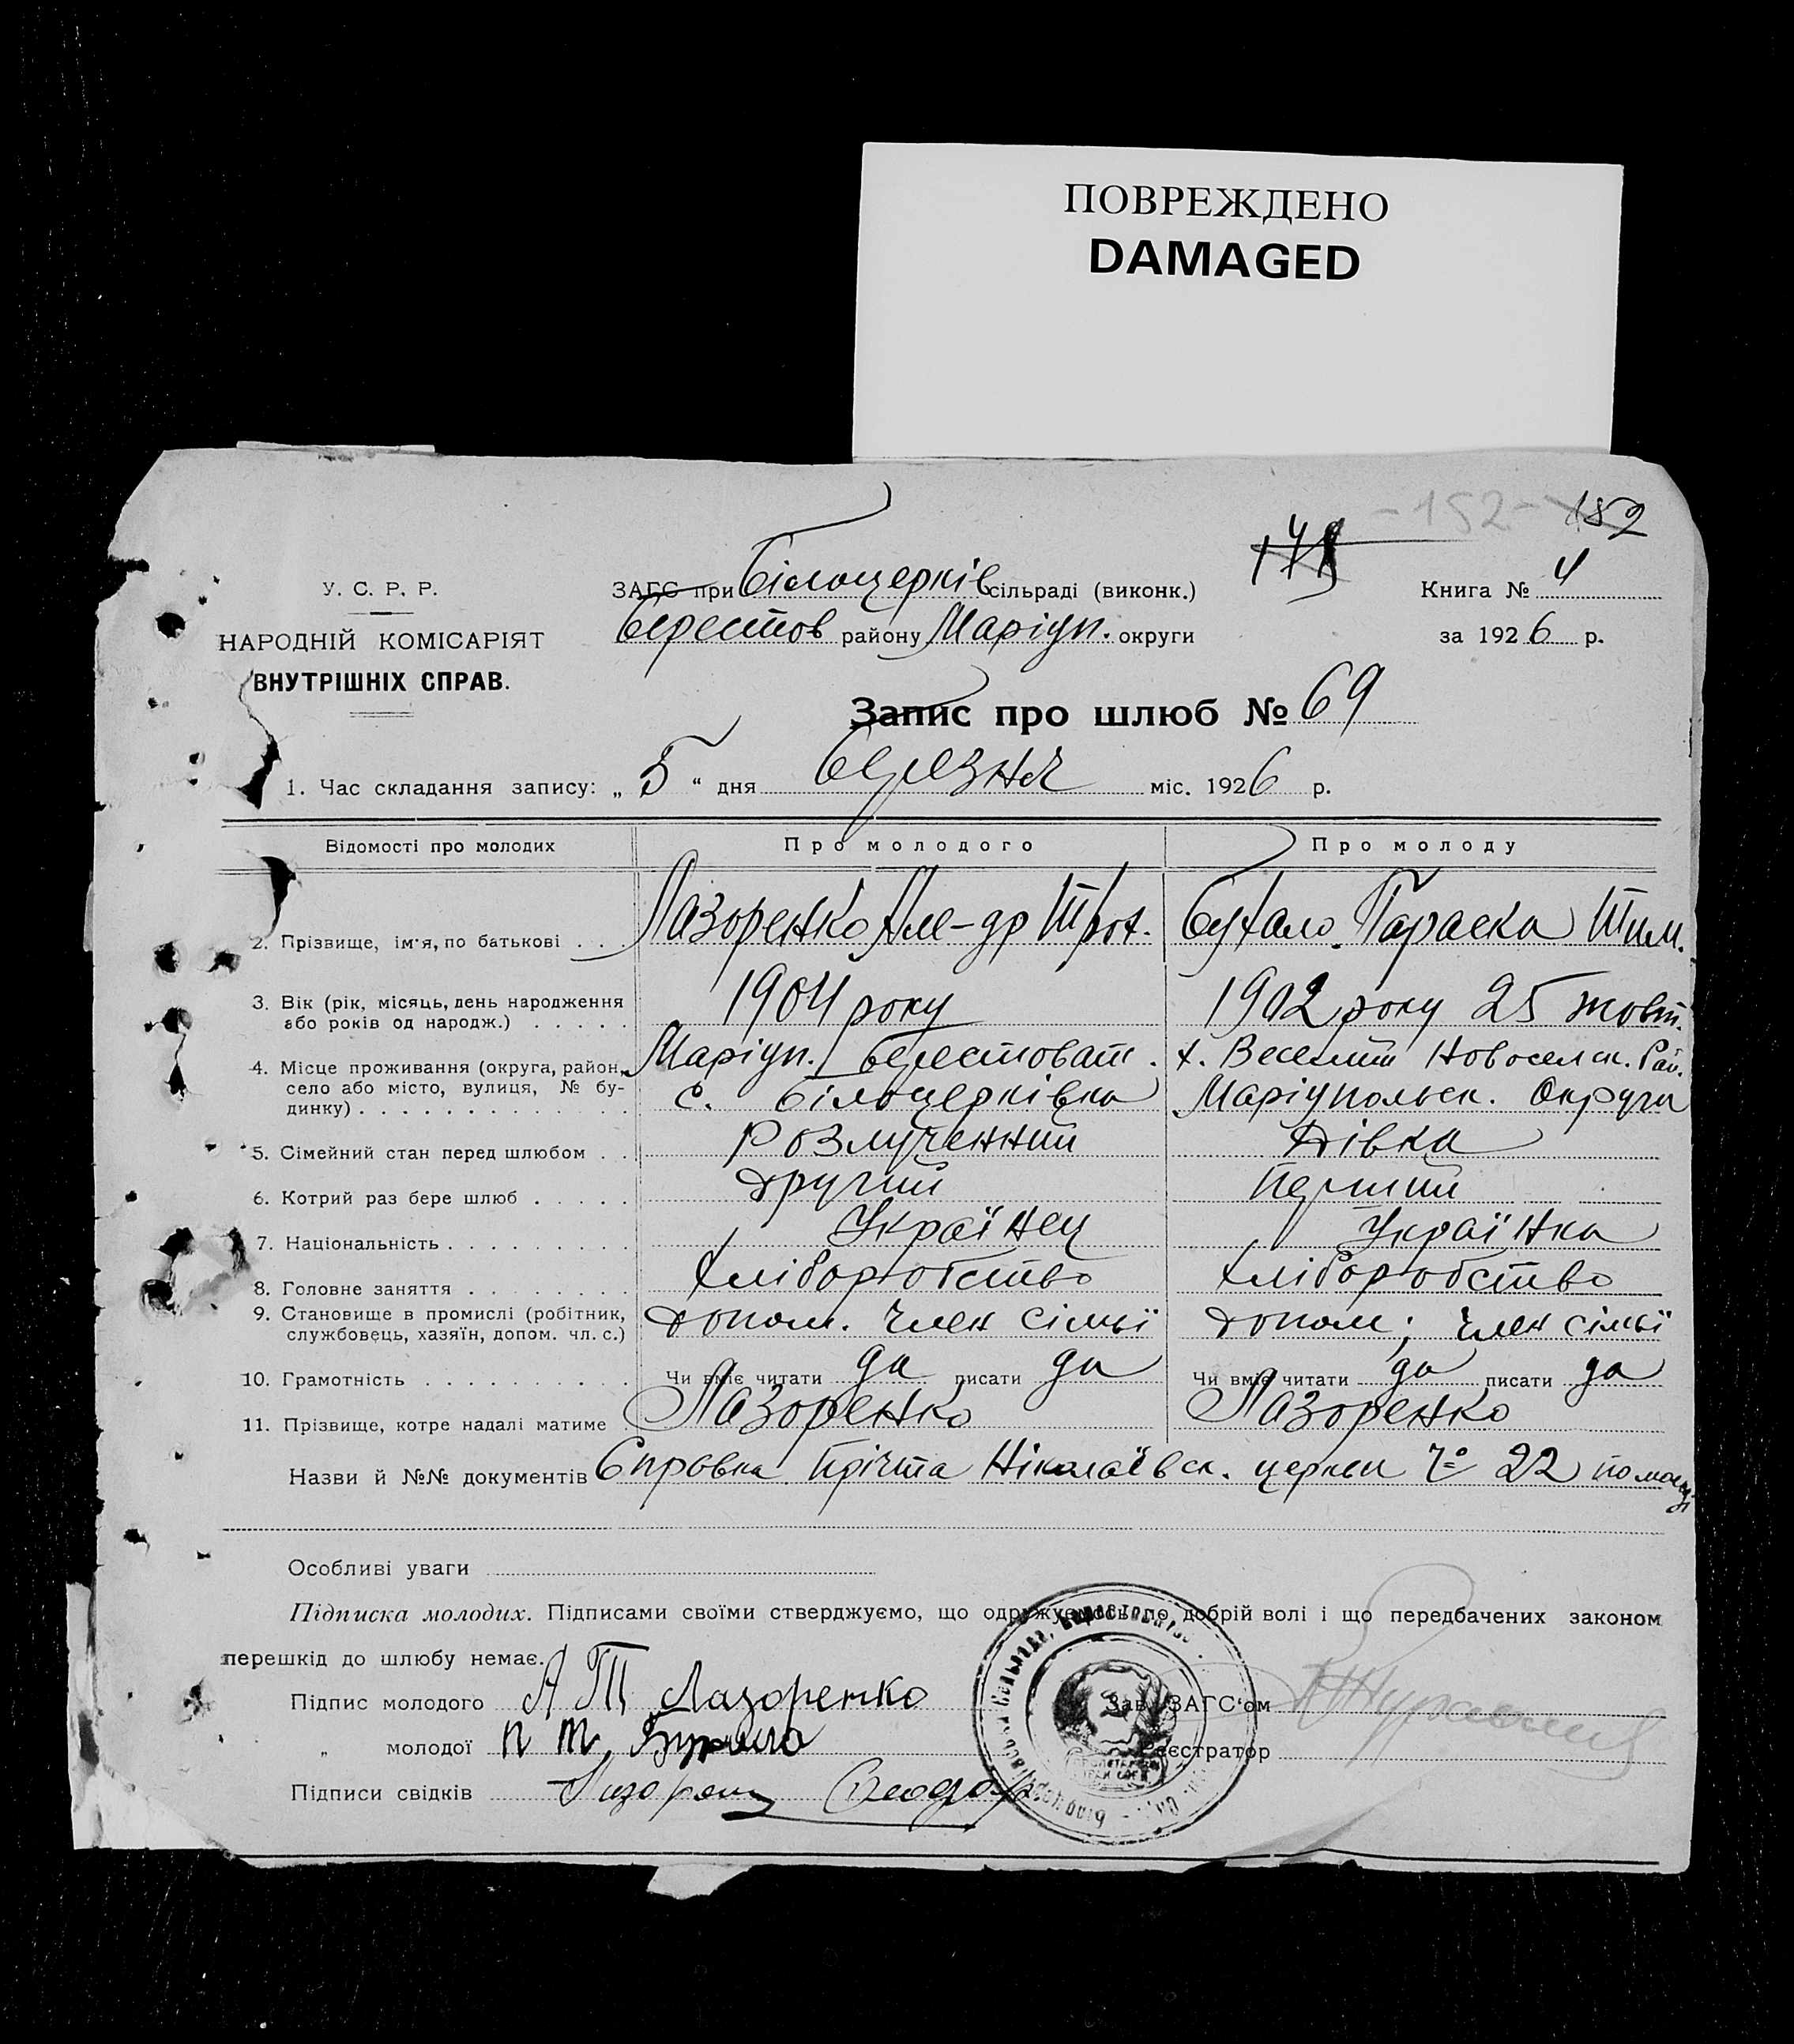 ПОВРЕЖДЕНО
DAMAGED
-152- 182
У. С. Р. Р.
НАРОДНІЙ КОМІСАРІЯТ
ВНУТРІШНІХ СПРАВ.
ЗАГС при Білоцерків сільраді (виконк.)
Берестов району Маріуп. округи
Книга № 4
за 1926 р.
Запис про шлюб № 69
1. Час складання запису: „ 5 “ дня березня міс. 1926 р.
Відомості про молодих Про молодого Про молоду
2. Прізвище, ім'я, по батькові . . . Лазоренко Але-др Трох. Бухало Параска Тим.
3. Вік (рік, місяць, день народження 1904 року 1902 року 25 жовт.
або років од народж.) . . . . .
4. Місце проживання (округа, район, Маріуп. Берестоват. х. Веселий Новоселск. Рай.
село або місто, вулиця, № бу- с. Білоцерківка Маріупольск. Округи
динку) . . . . . . . . . . . . .
5. Сімейний стан перед шлюбом . . Розлучений Дівка
6. Котрий раз бере шлюб . . . . . Другий Перший
7. Національність . . . . . . . . . Українец Українка
8. Головне заняття . . . . . . . . Хліборобство Хліборобство
9. Становище в промислі (робітник, Допом. член сімьї Допом; член сімьї
службовець, хазяїн, допом. чл. с.)
10. Грамотність . . . . . . . . . . Чи вміє читати да писати да Чи вміє читати да писати да
11. Прізвище, котре надалі матиме . Лазоренко Лазоренко
Назви й №№ документів Справка Прічта Ніколаївск. церкви № 22
Особливі уваги
Підписка молодих. Підписами своїми стверджуємо, що одружуємось по добрій волі і що передбачених законом
перешкід до шлюбу немає.
Підпис молодого А Т Лазоренко Зав. ЗАГС'ом
„ молодої П Т Бухало Реєстратор
Підписи свідків